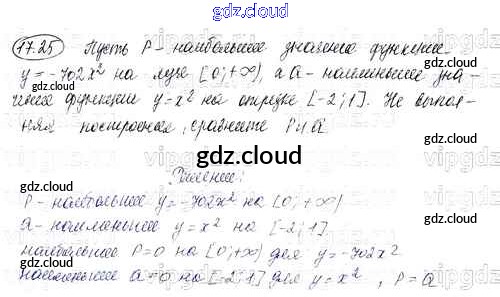 gdz.cloud gdz.cloud
17.25 Пусть P - наибольшее значение функции
y = -702x² на луче [0; +∞), а Q - наименьшее зна-
чение функции y = x² на отрезке [-2; 1]. Не выпол-
няя построения, сравните P и Q.
gdz.cloud
gdz.cloud
Решение:
P - наибольшее y = -702x² на [0; +∞)
Q - наименьшее y = x² на [-2; 1].
gdz.cloud
наибольшее P = 0 на [0; +∞) для y = -702x²
наименьшее Q = 0 на [-2; 1] для y = x², P = Q
gdz.cloud gdz.cloud